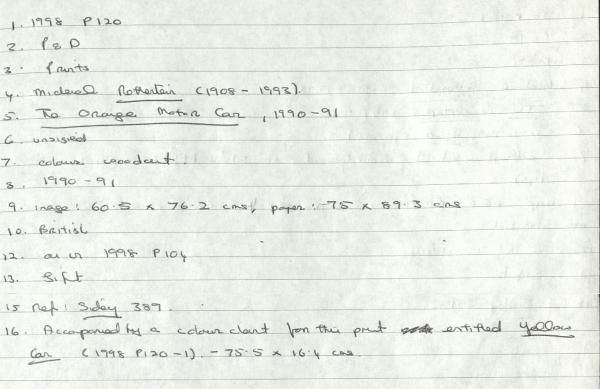 1. 1998 P120
2. P&D
3. Prints
4. Michael Rothenstein (1908 - 1993).
5. The Orange Motor Car, 1990-91
6. unsigned
7. colour woodcut.
8. 1990-91
9. image: 60.5 x 76.2 cms, paper: 75 x 89.3 cms
10. British
12. as in 1998 P104
13. Gift
15 Ref: Sidey 389.
16. Accompanied by a colour chart for this print entitled Yellow
Car (1998 P120-1). - 75.5 x 16.4 cms.